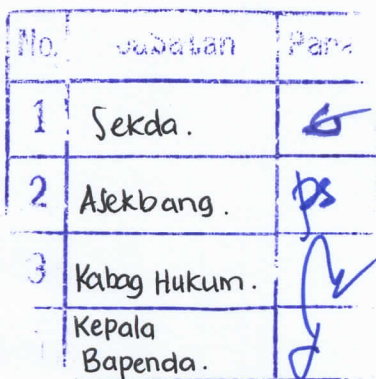 No. Jabatan Para
1 Sekda.
2 Asekbang. ps
3 Kabag Hukum.
Kepala
Bapenda.